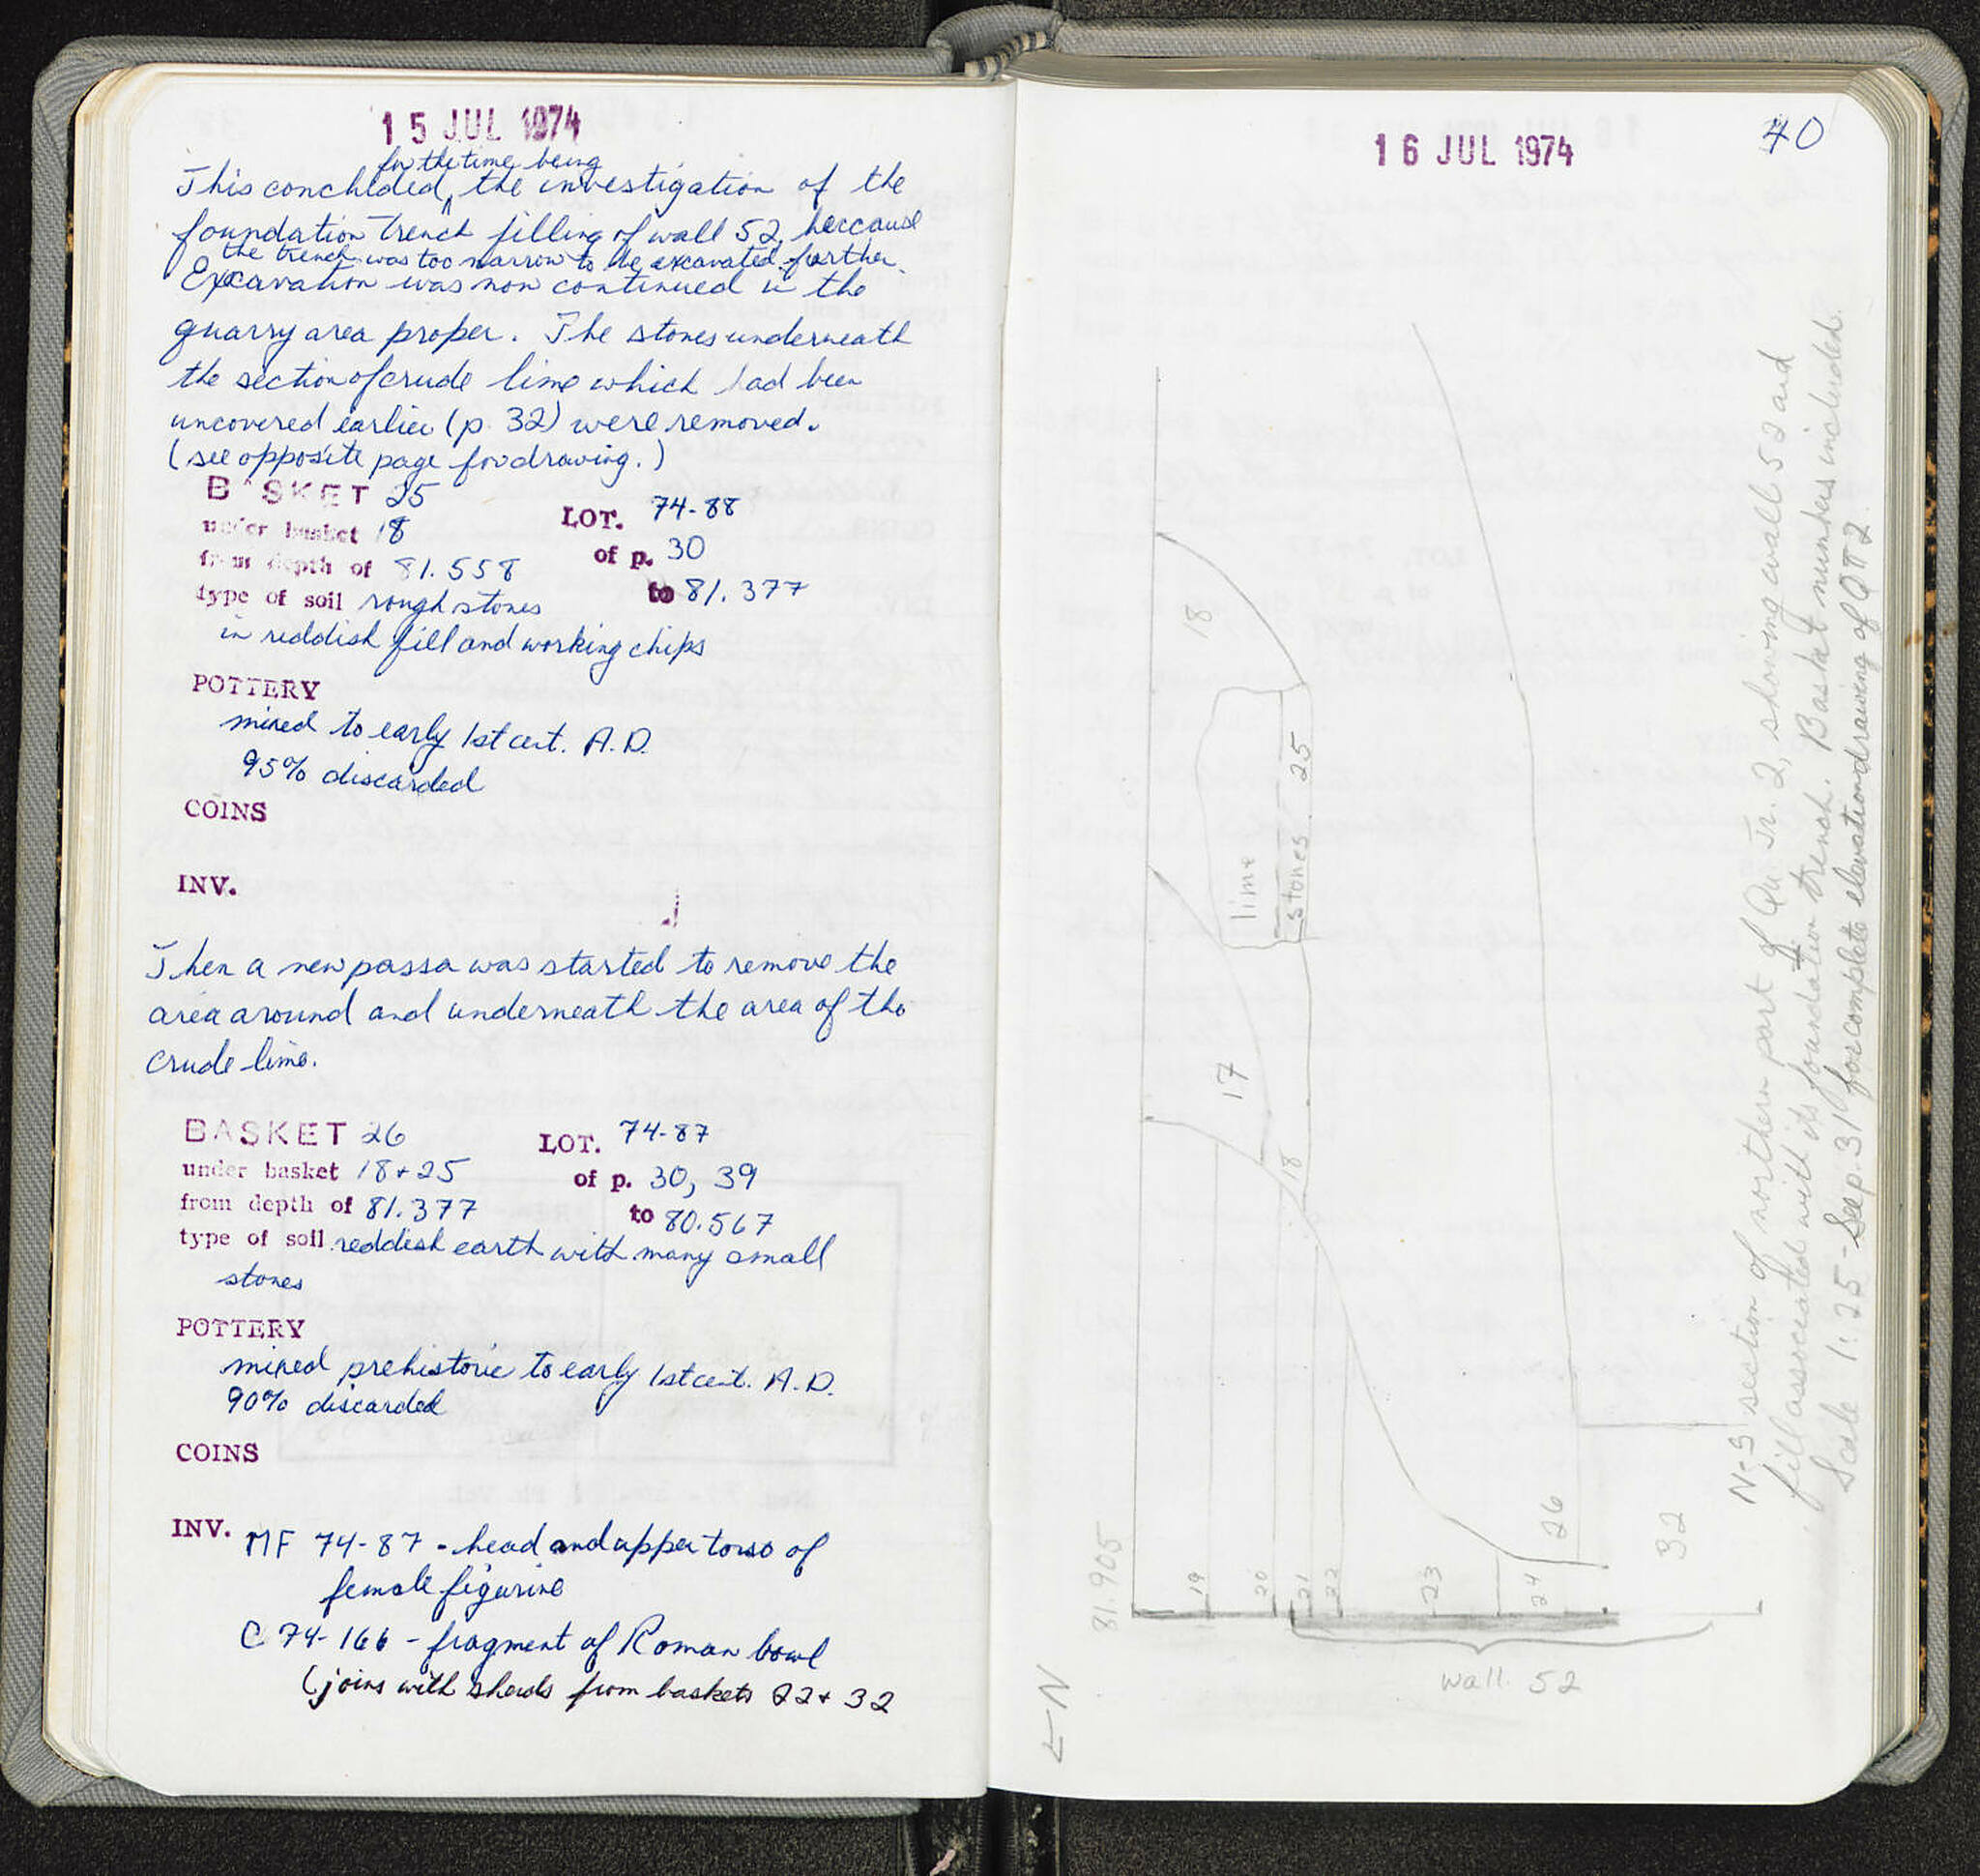 15 JUL 1974
for the time being
This concluded ‸ the investigation of the
foundation trench filling of wall 52, beccause
the trench was too narrow to be excavated further.
Excavation was now continued in the
quarry area proper. The stones underneath
the section of crude lime which had been
uncovered earlier (p. 32) were removed.
(see opposite page for drawing.)
BASKET 25 LOT. 74-88
under basket 18 of p. 30
from depth of 81.558 to 81.377
type of soil rough stones
in reddish fill and working chips
POTTERY
mixed to early 1st cent. A.D.
95% discarded
COINS
INV.
Then a new passa was started to remove the
area around and underneath the area of the
crude lime.
BASKET 26 LOT. 74-87
under basket 18+25 of p. 30, 39
from depth of 81.377 to 80.567
type of soil reddish earth with many small
stones
POTTERY
mixed prehistoric to early 1st cent. A.D.
90% discarded
COINS
INV. MF 74-87 - head and upper torso of
female figurine
C 74-166 - fragment of Roman bowl
(joins with sherds from baskets 22 + 32
16 JUL 1974
40
18
lime
stones 25
17
18
81.905
19
20
21
22
23
24
26
32
wall 52
N
N-S section of northern part of Qu Tr. 2, showing wall 52 and
fill associated with its foundation trench. Basket numbers included.
Scale 1:25 - See p. 31 for complete elevation drawing of QT 2.